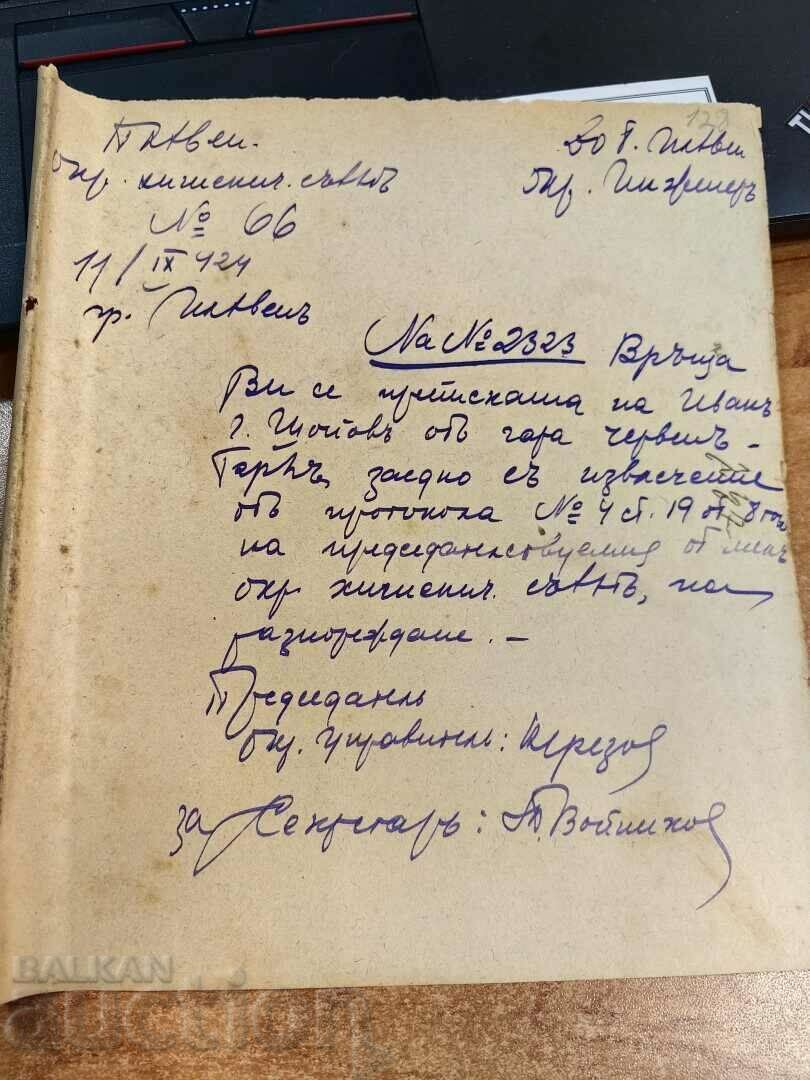 Плѣвен.
окр. хигиенич. съветъ
№ 66
11/IX 924
гр. Плѣвенъ
132
До Г. Плѣвен
окр. Инженеръ
На № 2323 Връща
Ви се преписката на Иванъ
г. Цоповъ отъ гара Червенъ-
Бряг, заедно съ извлечение
отъ протокола № 4 ст. 19 от
на председателствуемия от менъ
окр. хигиенич. съветъ, на
разпореждане. –
Председатель
окр. управитель:
за Секретарь: Т. Войников
BALKAN
auction